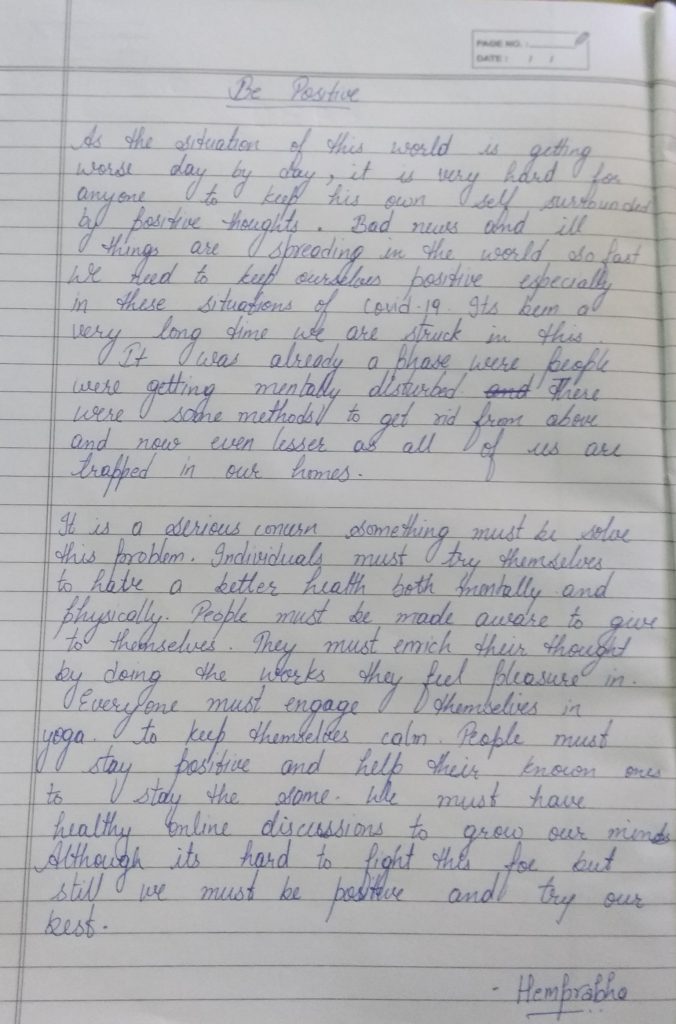 PAGE NO.:
DATE: / /
Be Positive
As the situation of this world is getting
worse day by day, it is very hard for
anyone to keep his own self surrounded
by positive thoughts. Bad news and ill
things are spreading in the world so fast
We need to keep ourselves positive especially
in these situations of covid-19. Its been a
very long time we are struck in this.
It was already a phase were people
were getting mentally disturbed and There
were some methods to get rid from above
and now even lesser as all of us are
trapped in our homes.
It is a serious concern something must be solve
this problem. Individuals must try themselves
to have a better health both mentally and
physically. People must be made aware to give
to themselves. They must enrich their thought
by doing the works they feel pleasure in.
Everyone must engage themselves in
yoga. to keep themselves calm. People must
stay positive and help their known ones
to stay the same. We must have
healthy online discussions to grow our minds
Although its hard to fight this foe but
still we must be positive and try our
best.
- Hemprabha